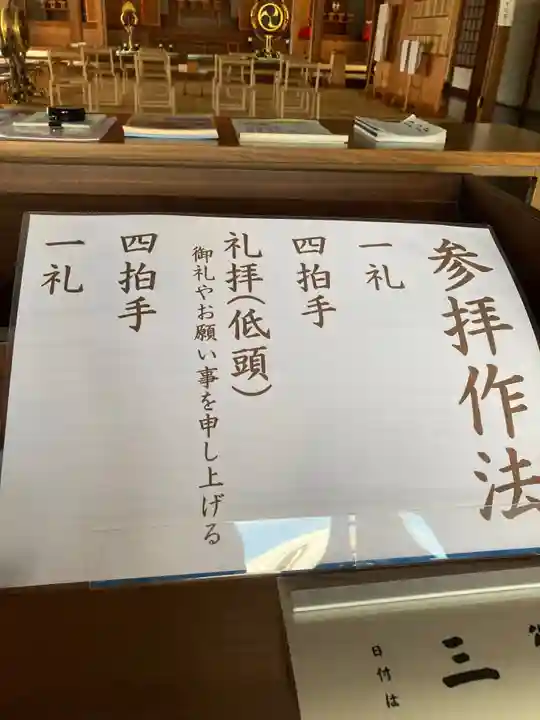 参拝作法
一礼
四拍手
礼拝(低頭)
御礼やお願い事を申し上げる
四拍手
一礼
三
日付は